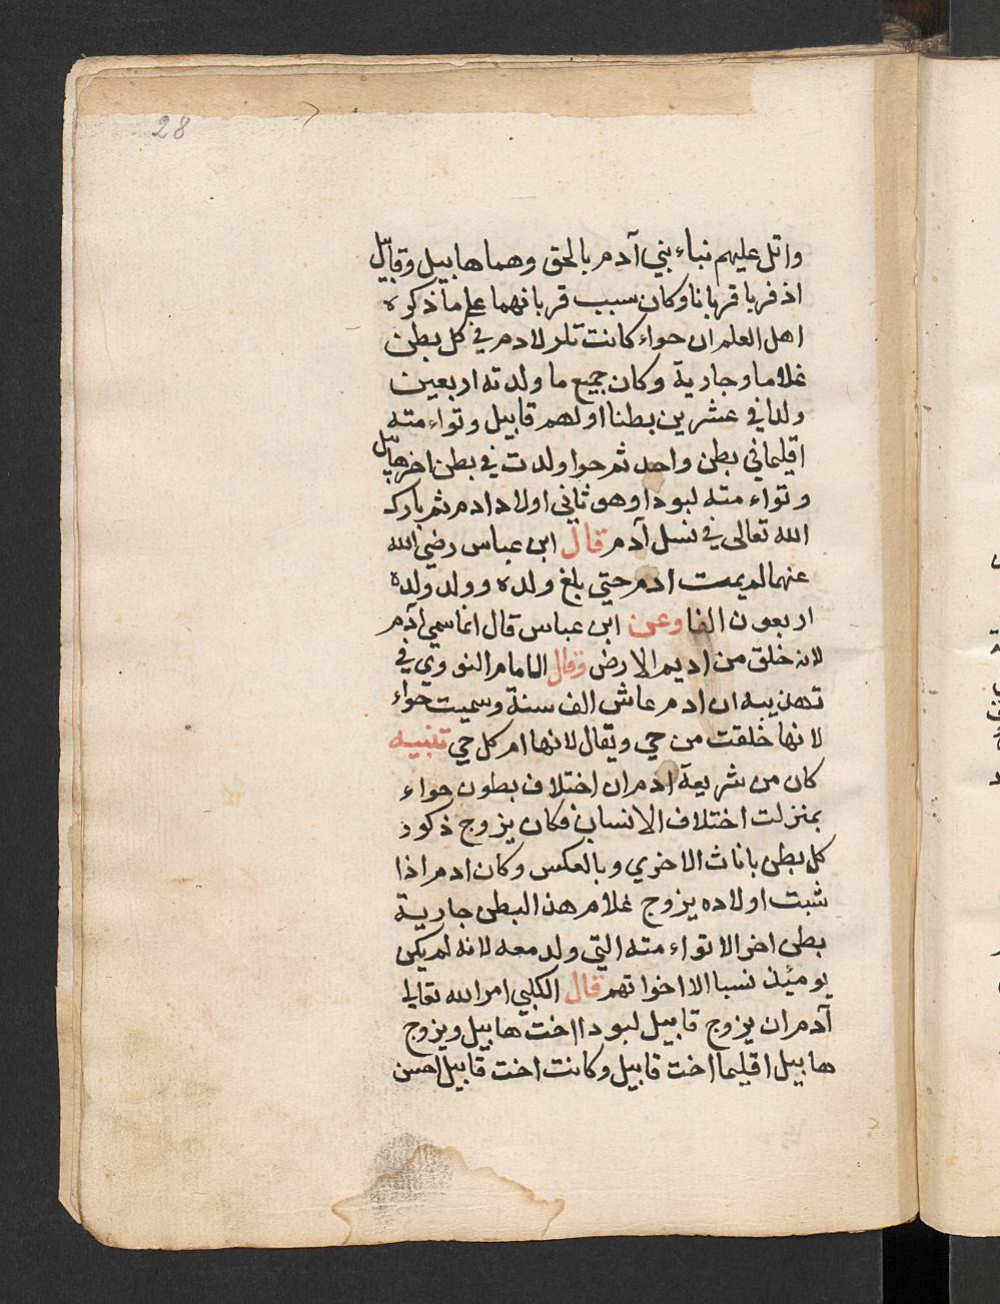 28
واتل عليهم نباء بني آدم بالحق وهما هابيل وقابيل
اذ قربا قربانا وكان سبب قربانهما على ما ذكره
اهل العلم ان حواء كانت تلد لادم في كل بطن
غلاما وجارية وكان جميع ما ولدته اربعين
ولدا في عشرين بطنا اولهم قابيل وتواءمته
اقليما في بطن واحد ثم حوا ولدت في بطن اخر هابيل
وتواءمته لبودا وهو ثاني اولاد ادم ثم بارك
الله تعالى في نسل آدم قال ابن عباس رضي الله
عنهما لم يمت ادم حتي بلغ ولده وولد ولده
اربعون الفا وعن ابن عباس قال انما سمي آدم
لانه خلق من اديم الارض وقال الامام النووي في
تهذيبه ان ادم عاش الف سنة وسميت حواء
لانها خلقت من حي ويقال لانها ام كل حي تنبيه
كان من شريعة ادم ان اختلاف بطون حواء
بمنزلت اختلاف الانساب فكان يزوج ذكور
كل بطن باناث الاخري وبالعكس وكان ادم اذا
شبت اولاده يزوج غلام هذا البطن جارية
بطن اخر الا تواءمته التي ولد معه لانه لم يكن
يومئذ نسبا الا اخواتهم قال الكلبي امر الله تعالى
آدم ان يزوج قابيل لبودا اخت هابيل ويزوج
هابيل اقليما اخت قابيل وكانت اخت قابيل احسن